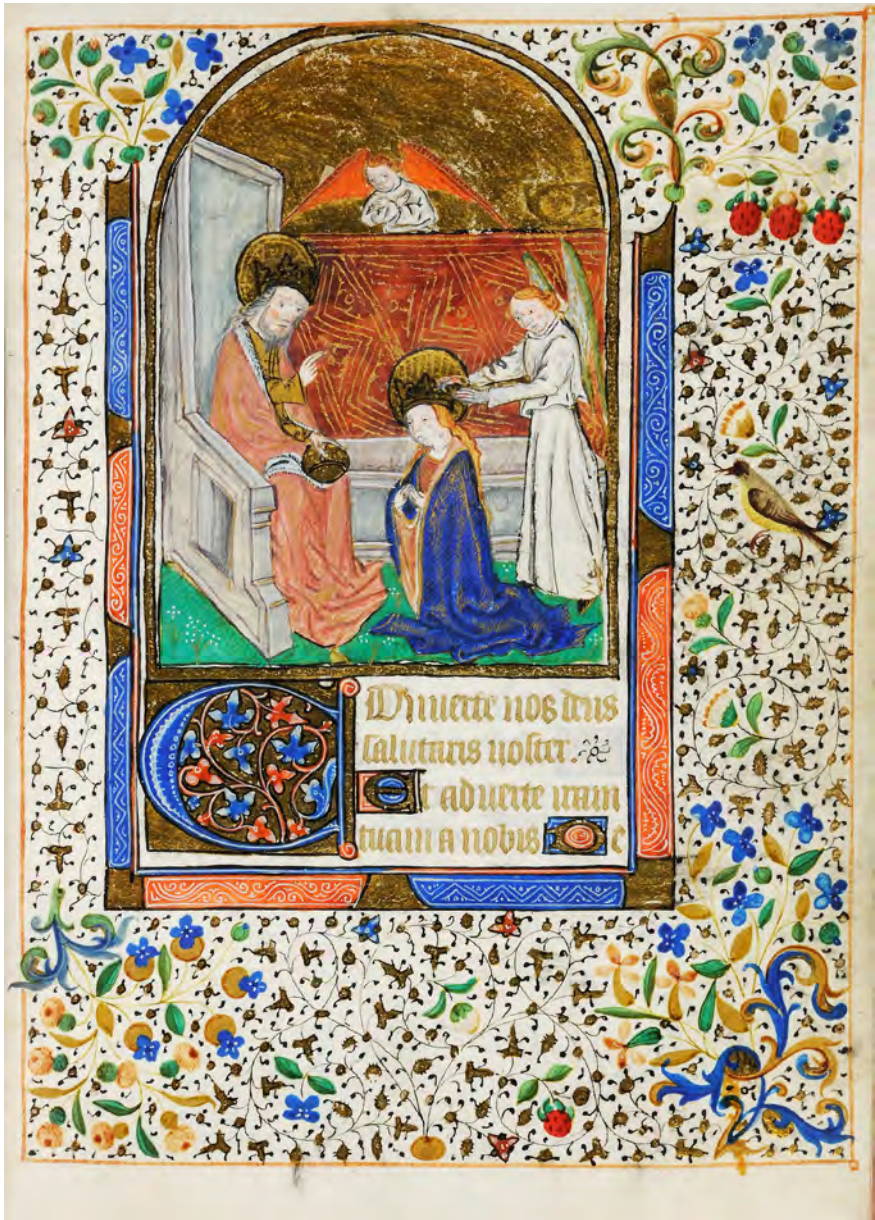 Conuerte nos deus
salutaris noster.
Et aduerte iram
tuam a nobis De